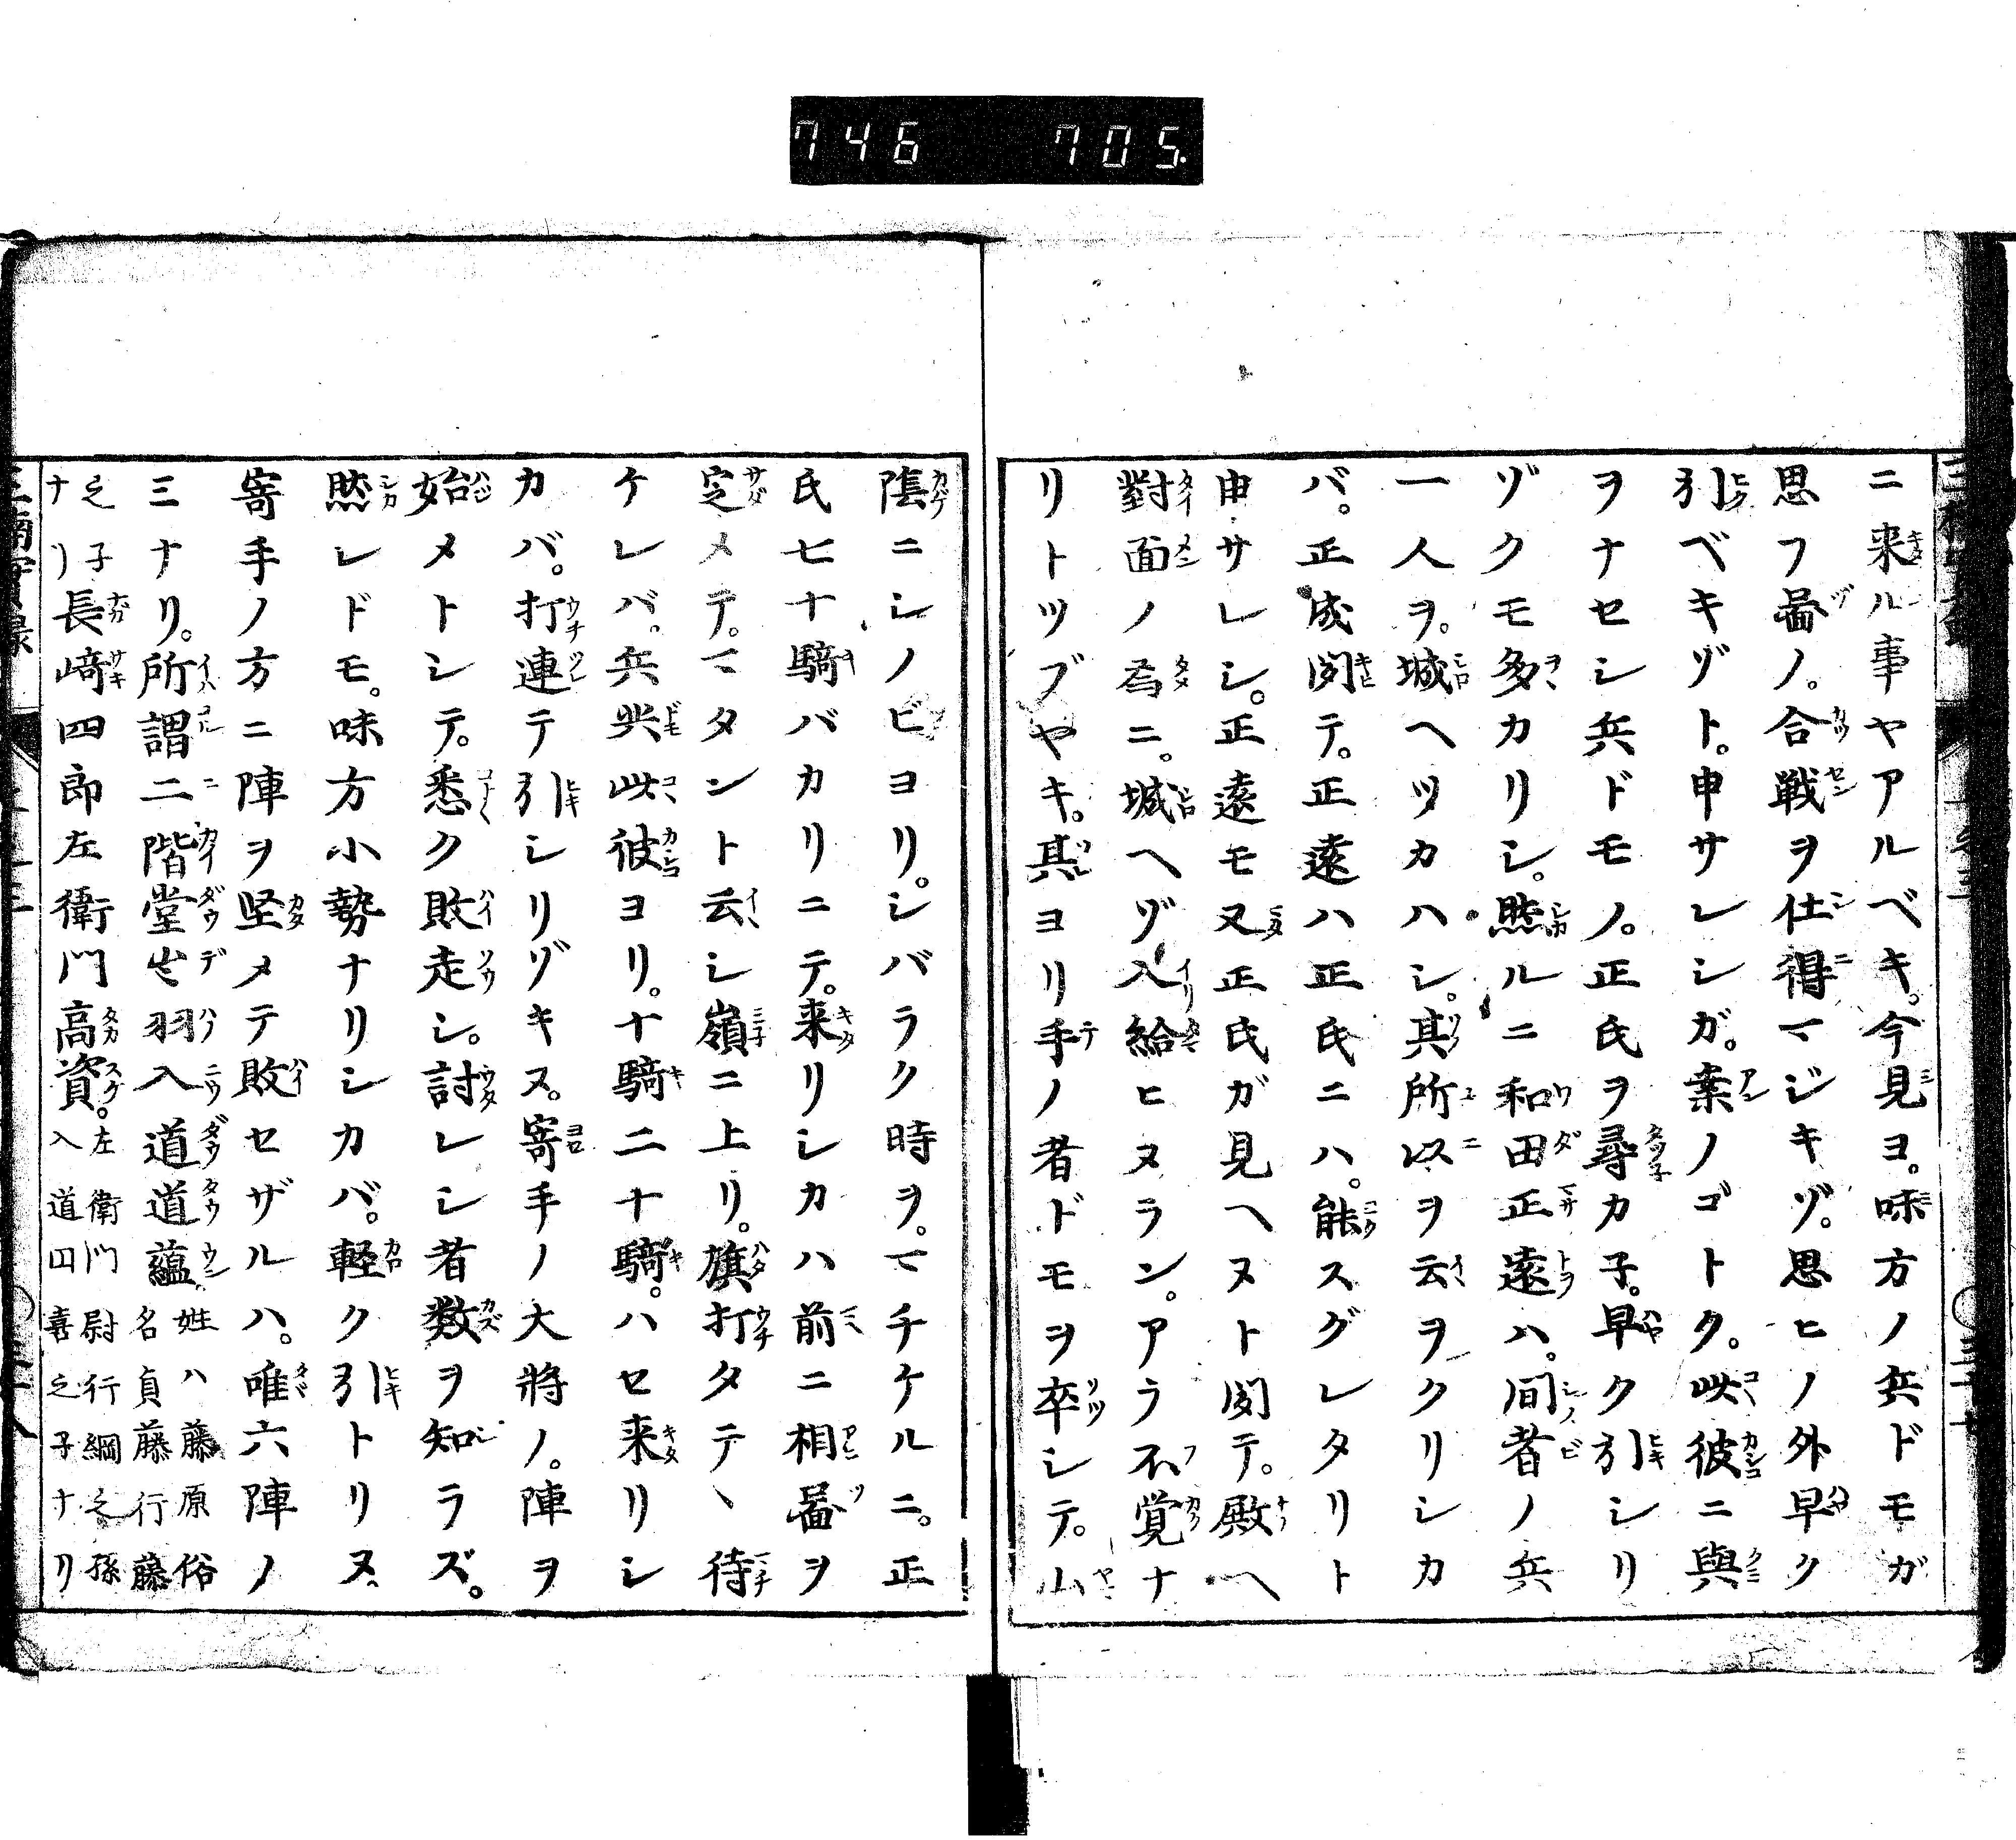 746 705.
ニ来ル事ヤアルベキ。今見ヨ。味方ノ兵ドモガ
思フ啚ノ。合戦ヲ仕得マジキゾ。思ヒノ外早ク
引ベキゾト。申サレシガ。案ノゴトク。此彼ニ與
ヲナセシ兵ドモノ。正氏ヲ尋カ子。早ク引シリ
ゾクモ多カリシ。然ルニ和田正遠ハ。間者ノ兵
一人ヲ。城ヘツカハシ。其所以ヲ云ヲクリシカ
バ。正成聞テ。正遠ハ正氏ニハ。能スグレタリト
申サレシ。正遠モ又正氏ガ見ヘヌト聞テ。殿ヘ
對面ノ為ニ。城ヘゾ入給ヒヌラン。アラ不覚ナ
リトツブヤキ。其ヨリ手ノ者ドモヲ卒シテ。山
陰ニシノビヨリ。シバラク時ヲ。マチケルニ。正
氏七十騎バカリニテ。来リシカハ前ニ相啚ヲ
定メテ。マタント云シ嶺ニ上リ。旗打タテヽ待
ケレバ。兵共此彼ヨリ。十騎二十騎。ハセ来リシ
カバ。打連テ引シリゾキヌ。寄手ノ大將ノ。陣ヲ
始メトシテ。悉ク敗走シ。討レシ者数ヲ知ラズ。
然レドモ。味方小勢ナリシカバ。軽ク引トリヌ。
寄手ノ方ニ陣ヲ堅メテ敗セザルハ。唯六陣ノ
ミナリ。所謂二階堂出羽入道道蘊姓ハ藤原俗名貞藤行藤
之子ナリ長﨑四郎左衛門高資。左衛門尉行綱之孫入道四喜之子ナリ